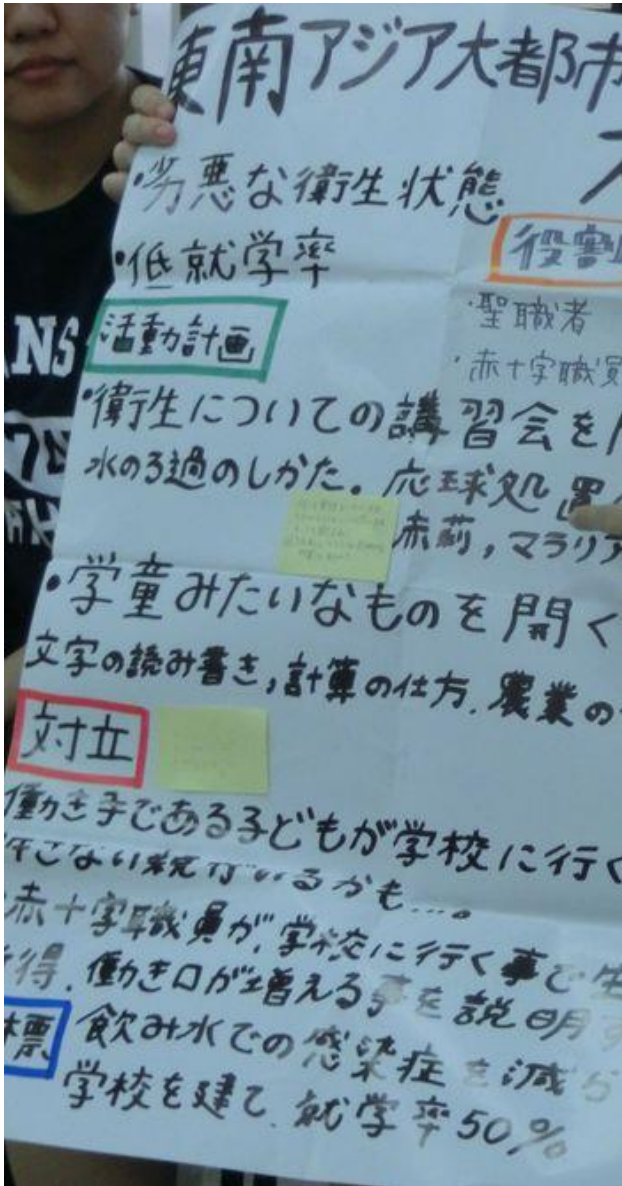 東南アジア大都市
・劣悪な衛生状態
・低就学率
役割
・聖職者
・赤十字職員
活動計画
・衛生についての講習会を
水のろ過のしかた。応球処置
赤痢,マラリア
・学童みたいなものを開く
文字の読み書き,計算の仕方.農業の
対立
働き手である子どもが学校に行く
許さない親がいるかも...。
赤十字職員が,学校に行く事で生
得.働き口が増える事を説明す
標
飲み水での感染症を減ら
学校を建て、就学率50%
NS